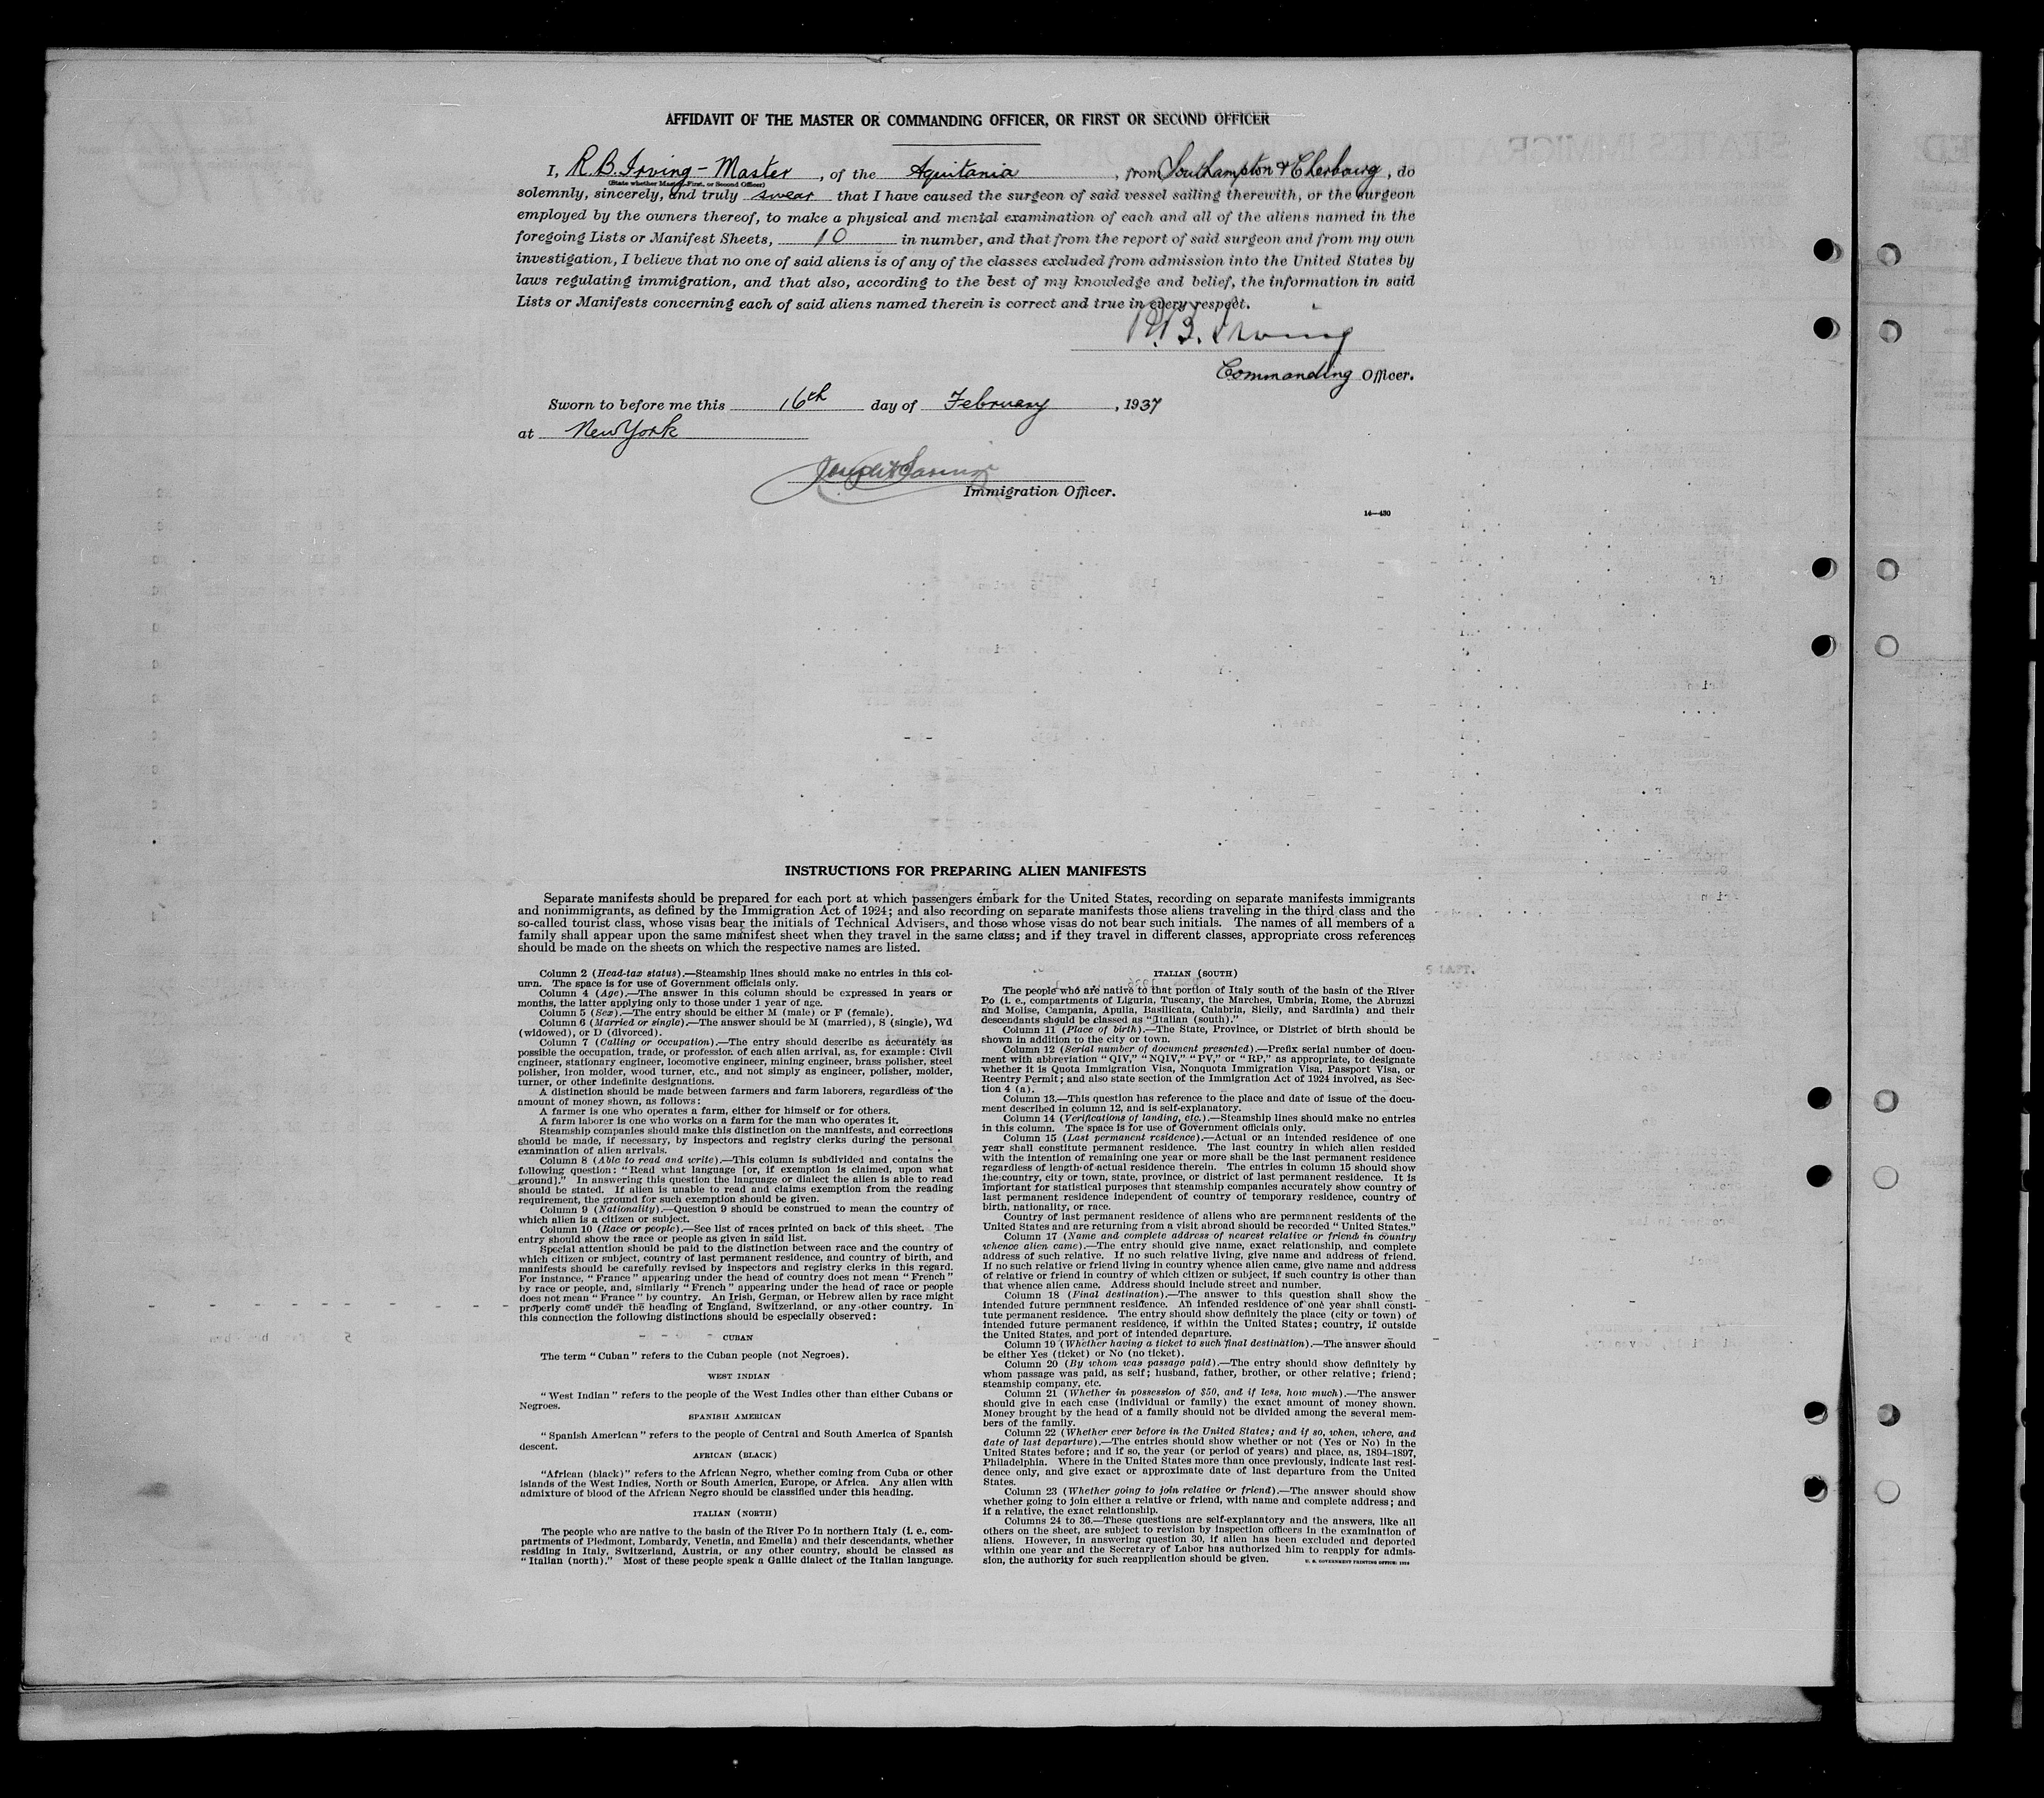 AFFIDAVIT OF THE MASTER OR COMMANDING OFFICER, OR FIRST OR SECOND OFFICER
I, R. B. Irving - Master, of the Aquitania, from Southampton & Cherbourg, do
(State whether Master, First, or Second Officer)
solemnly, sincerely, and truly swear that I have caused the surgeon of said vessel sailing therewith, or the surgeon
employed by the owners thereof, to make a physical and mental examination of each and all of the aliens named in the
foregoing Lists or Manifest Sheets, 10 in number, and that from the report of said surgeon and from my own
investigation, I believe that no one of said aliens is of any of the classes excluded from admission into the United States by
laws regulating immigration, and that also, according to the best of my knowledge and belief, the information in said
Lists or Manifests concerning each of said aliens named therein is correct and true in every respect.
R. B. Irving
Commanding Officer.
Sworn to before me this 16th day of February, 1937
at New York
Immigration Officer.
14—430
INSTRUCTIONS FOR PREPARING ALIEN MANIFESTS
Separate manifests should be prepared for each port at which passengers embark for the United States, recording on separate manifests immigrants
and nonimmigrants, as defined by the Immigration Act of 1924; and also recording on separate manifests those aliens traveling in the third class and the
so-called tourist class, whose visas bear the initials of Technical Advisers, and those whose visas do not bear such initials. The names of all members of a
family shall appear upon the same manifest sheet when they travel in the same class; and if they travel in different classes, appropriate cross references
should be made on the sheets on which the respective names are listed.
Column 2 (Head-tax status).—Steamship lines should make no entries in this col-
umn. The space is for use of Government officials only.
Column 4 (Age).—The answer in this column should be expressed in years or
months, the latter applying only to those under 1 year of age.
Column 5 (Sex).—The entry should be either M (male) or F (female).
Column 6 (Married or single).—The answer should be M (married), S (single), Wd
(widowed), or D (divorced).
Column 7 (Calling or occupation).—The entry should describe as accurately as
possible the occupation, trade, or profession of each alien arrival, as, for example: Civil
engineer, stationary engineer, locomotive engineer, mining engineer, brass polisher, steel
polisher, iron molder, wood turner, etc., and not simply as engineer, polisher, molder,
turner, or other indefinite designations.
A distinction should be made between farmers and farm laborers, regardless of the
amount of money shown, as follows:
A farmer is one who operates a farm, either for himself or for others.
A farm laborer is one who works on a farm for the man who operates it.
Steamship companies should make this distinction on the manifests, and corrections
should be made, if necessary, by inspectors and registry clerks during the personal
examination of alien arrivals.
Column 8 (Able to read and write).—This column is subdivided and contains the
following question: “Read what language [or, if exemption is claimed, upon what
ground].” In answering this question the language or dialect the alien is able to read
should be stated. If alien is unable to read and claims exemption from the reading
requirement, the ground for such exemption should be given.
Column 9 (Nationality).—Question 9 should be construed to mean the country of
which alien is a citizen or subject.
Column 10 (Race or people).—See list of races printed on back of this sheet. The
entry should show the race or people as given in said list.
Special attention should be paid to the distinction between race and the country of
which citizen or subject, country of last permanent residence, and country of birth, and
manifests should be carefully revised by inspectors and registry clerks in this regard.
For instance, “France” appearing under the head of country does not mean “French”
by race or people, and, similarly “French” appearing under the head of race or people
does not mean “France” by country. An Irish, German, or Hebrew alien by race might
properly come under the heading of England, Switzerland, or any other country. In
this connection the following distinctions should be especially observed:
CUBAN
The term “Cuban” refers to the Cuban people (not Negroes).
WEST INDIAN
“West Indian” refers to the people of the West Indies other than either Cubans or
Negroes.
SPANISH AMERICAN
“Spanish American” refers to the people of Central and South America of Spanish
descent.
AFRICAN (BLACK)
“African (black)” refers to the African Negro, whether coming from Cuba or other
islands of the West Indies, North or South America, Europe, or Africa. Any alien with
admixture of blood of the African Negro should be classified under this heading.
ITALIAN (NORTH)
The people who are native to the basin of the River Po in northern Italy (i. e., com-
partments of Piedmont, Lombardy, Venetia, and Emelia) and their descendants, whether
residing in Italy, Switzerland, Austria, or any other country, should be classed as
“Italian (north).” Most of these people speak a Gallic dialect of the Italian language.
ITALIAN (SOUTH)
The people who are native to that portion of Italy south of the basin of the River
Po (i. e., compartments of Liguria, Tuscany, the Marches, Umbria, Rome, the Abruzzi
and Molise, Campania, Apulia, Basilicata, Calabria, Sicily, and Sardinia) and their
descendants should be classed as “Italian (south).”
Column 11 (Place of birth).—The State, Province, or District of birth should be
shown in addition to the city or town.
Column 12 (Serial number of document presented).—Prefix serial number of docu-
ment with abbreviation “QIV,” “NQIV,” “PV,” or “RP,” as appropriate, to designate
whether it is Quota Immigration Visa, Nonquota Immigration Visa, Passport Visa, or
Reentry Permit; and also state section of the Immigration Act of 1924 involved, as Sec-
tion 4 (a).
Column 13.—This question has reference to the place and date of issue of the docu-
ment described in column 12, and is self-explanatory.
Column 14 (Verifications of landing, etc.).—Steamship lines should make no entries
in this column. The space is for use of Government officials only.
Column 15 (Last permanent residence).—Actual or an intended residence of one
year shall constitute permanent residence. The last country in which alien resided
with the intention of remaining one year or more shall be the last permanent residence
regardless of length of actual residence therein. The entries in column 15 should show
the country, city or town, state, province, or district of last permanent residence. It is
important for statistical purposes that steamship companies accurately show country of
last permanent residence independent of country of temporary residence, country of
birth, nationality, or race.
Country of last permanent residence of aliens who are permanent residents of the
United States and are returning from a visit abroad should be recorded “United States.”
Column 17 (Name and complete address of nearest relative or friend in country
whence alien came).—The entry should give name, exact relationship, and complete
address of such relative. If no such relative living, give name and address of friend.
If no such relative or friend living in country whence alien came, give name and address
of relative or friend in country of which citizen or subject, if such country is other than
that whence alien came. Address should include street and number.
Column 18 (Final destination).—The answer to this question shall show the
intended future permanent residence. An intended residence of one year shall consti-
tute permanent residence. The entry should show definitely the place (city or town) of
intended future permanent residence, if within the United States; country, if outside
the United States, and port of intended departure.
Column 19 (Whether having a ticket to such final destination).—The answer should
be either Yes (ticket) or No (no ticket).
Column 20 (By whom was passage paid).—The entry should show definitely by
whom passage was paid, as self; husband, father, brother, or other relative; friend;
steamship company, etc.
Column 21 (Whether in possession of $50, and if less, how much).—The answer
should give in each case (individual or family) the exact amount of money shown.
Money brought by the head of a family should not be divided among the several mem-
bers of the family.
Column 22 (Whether ever before in the United States; and if so, when, where, and
date of last departure).—The entries should show whether or not (Yes or No) in the
United States before; and if so, the year (or period of years) and place, as, 1894–1897,
Philadelphia. Where in the United States more than once previously, indicate last resi-
dence only, and give exact or approximate date of last departure from the United
States.
Column 23 (Whether going to join relative or friend).—The answer should show
whether going to join either a relative or friend, with name and complete address; and
if a relative, the exact relationship.
Columns 24 to 36.—These questions are self-explanatory and the answers, like all
others on the sheet, are subject to revision by inspection officers in the examination of
aliens. However, in answering question 30, if alien has been excluded and deported
within one year and the Secretary of Labor has authorized him to reapply for admis-
sion, the authority for such reapplication should be given.
U. S. GOVERNMENT PRINTING OFFICE